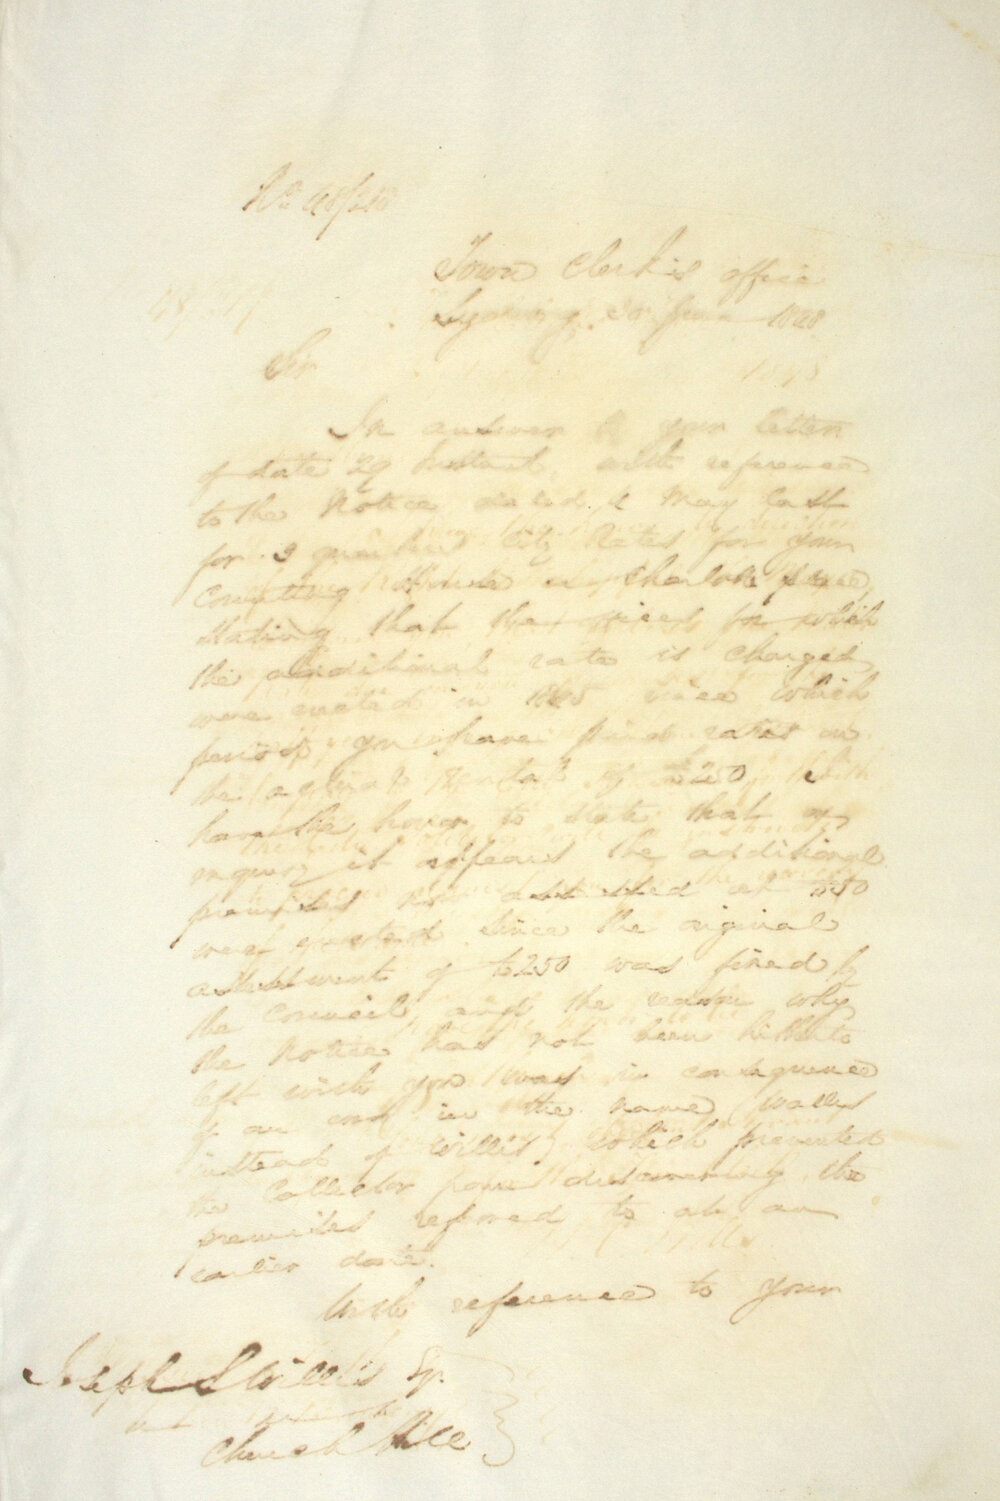 No 48/
Town Clerk's office
Sydney 30 June 1848
Sir
In answer to your letter
of date 29 Instant, with reference
to the Notice dated 4 May last
for 3 quarters City Rates for your
Counting House in Charlotte place,
stating that the for which
the additional rate is charged,
were erected in 1845 since which
period, you have paid rates on
the rental of £250, I
have the honor to state that on
inquiry it appears the additional
premises assessed at £50
were erected since the original
assessment of £250 was fixed by
the Council, and the reason why
the Notice has not been hitherto
left with you was in consequence
of an error in the name Wallis
instead of Willis, which prevented
the Collector from discovering the
premises referred to at an
earlier date.
With reference to your
Joseph S Willis Esq.
Church Hill